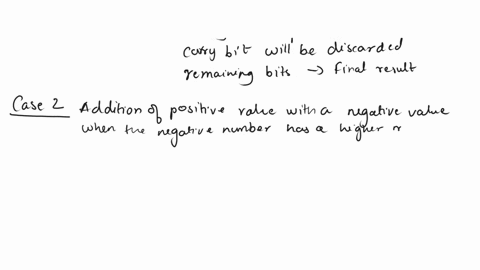 carry bit will be discarded
remaining bits → final result
Case 2 Addition of positive value with a negative value
when the negative number has a higher